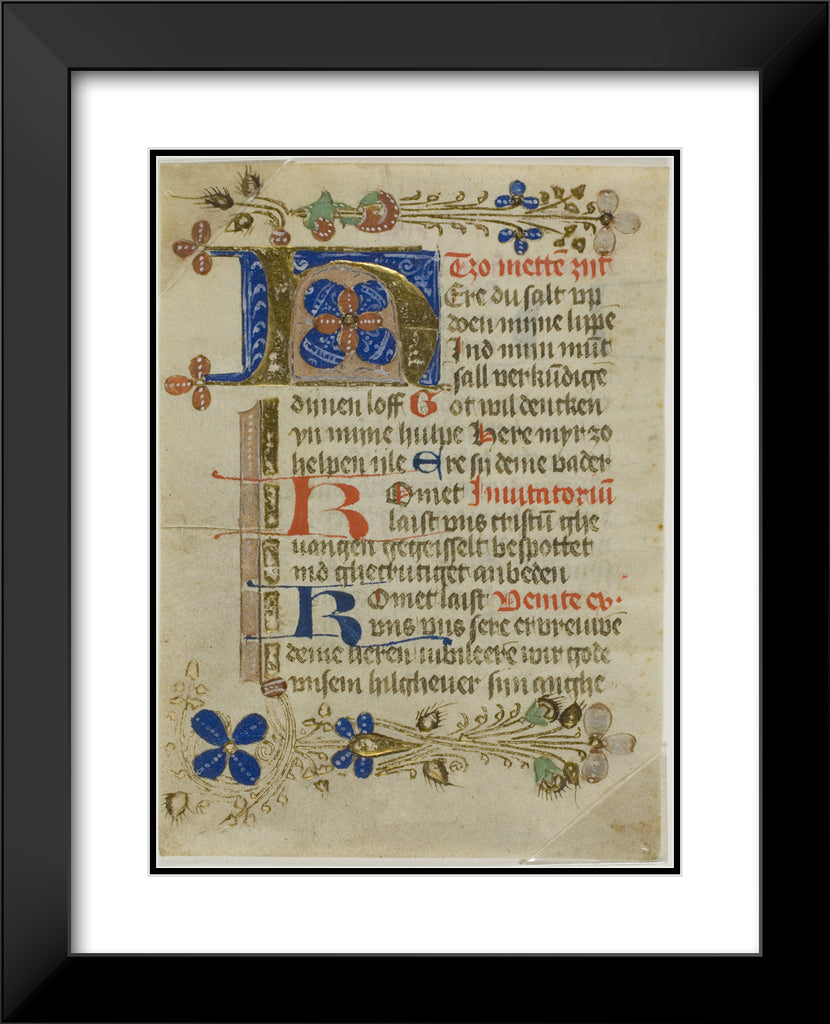 Tzo mettē zijt
HEre du salt vp
doen mijne lippe
Ind mijn mūt
sall verkūdige
dijnen loff Got wil dencken
yn mijne hulpe Here myr zo
helpen ijle Ere sij deme vader
Komet Inuitatoriū
laist vns cristū ghe
uangen gegeisselt bespottet
ind ghecrutziget anbeden
Komet laist Venite ex·
vns vns sere ervreuwē
deme heren iubileere wir gode
vnsem hilgheuer sijn anghe